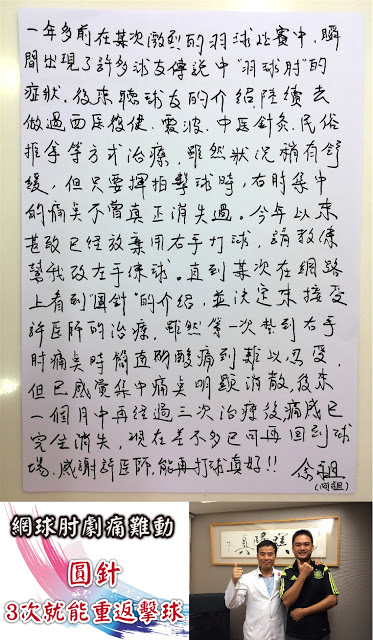 一年多前在某次激烈的羽球比賽中，瞬
間出現了許多球友傳說中"羽球肘"的
症狀，後來聽球友的介紹陸續去
做過西医復健、震波、中医針灸、民俗
推拿等方式治療，雖然狀況稍有舒
緩，但只要揮拍擊球時，右肘集中
的痛點不曾真正消失過。今年以來
甚致已經放棄用右手打球，請教練
幫我改左手練球。直到某次在網路
上看到"圓針"的介紹，並決定來接受
許医師的治療，雖然第一次執到右手
肘痛點時簡直酸痛到難以忍受，
但已感覺集中痛點明顯消散，後來
一個月中再經過三次治療後痛感已
完全消失，現在差不多已可再回到球
場，感謝許医師，能再打球真好!!
網球肘劇痛難動
圓針
3次就能重返擊球